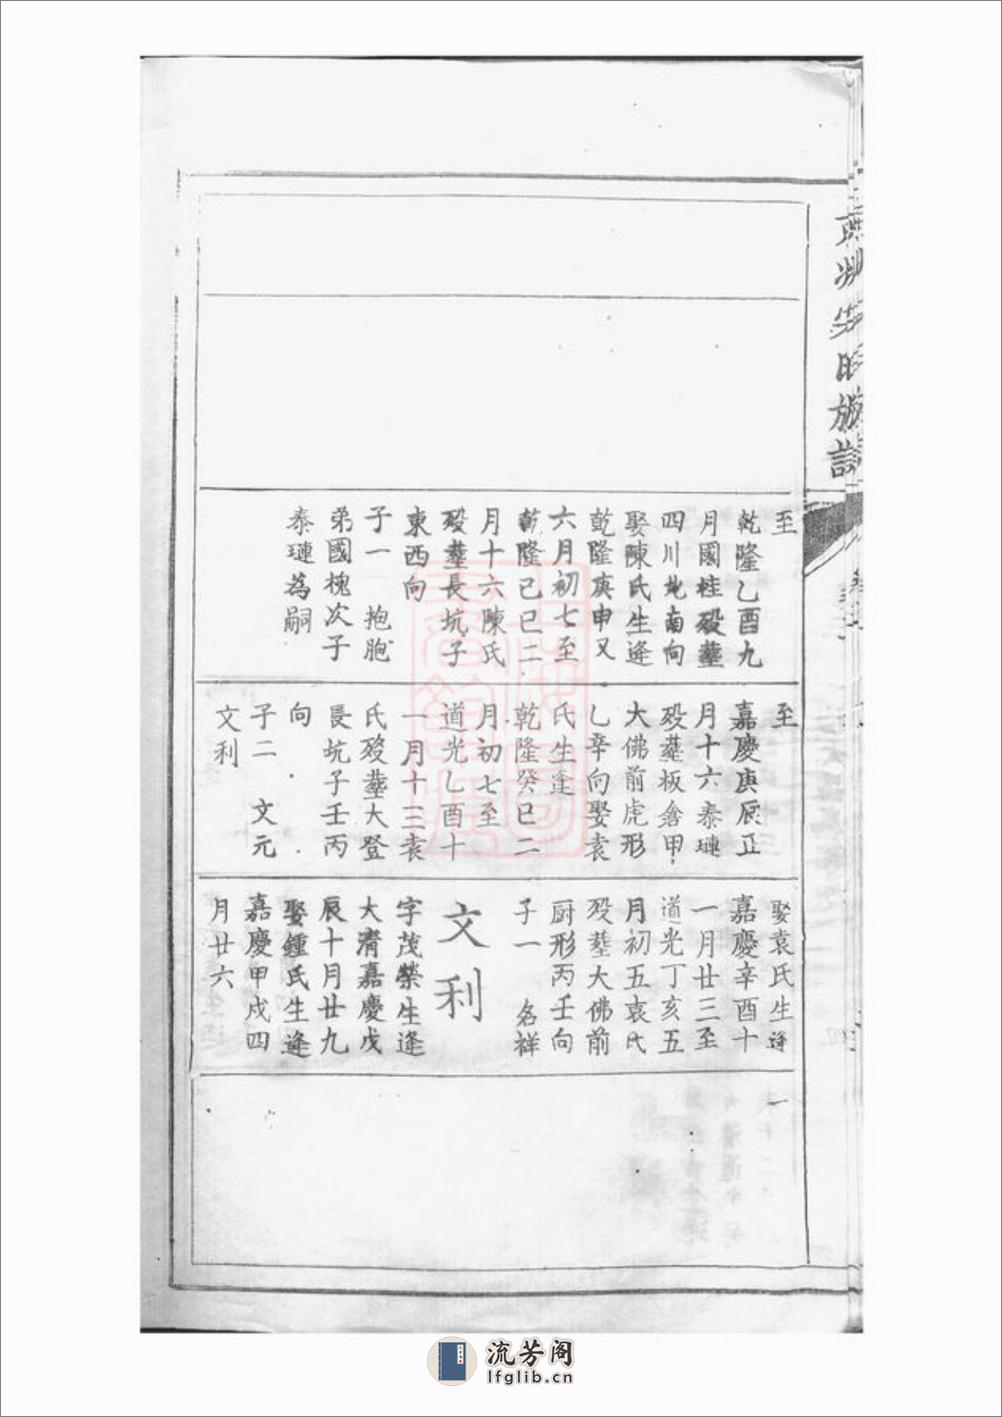 族譜
至
乾隆乙酉九
月國桂殁塟
四川北南向
娶陳氏生逢
乾隆庚申又
六月初七至
乾隆己巳二
月十六陳氏
殁塟長坑子
東西向
子一 抱胞
弟國槐次子
泰璉為嗣
至
嘉慶庚辰正
月十六泰璉
殁塟板倉甲
大佛前虎形
乙辛向娶袁
氏生逢
乾隆癸巳二
月初七至
道光乙酉十
一月十三袁
氏殁塟大登
長坑子壬丙
向
子二 文元
文利
娶袁氏生逢
嘉慶辛酉十
一月廿三至
道光丁亥五
月初五袁氏
殁塟大佛前
厨形丙壬向
子一 名祥
文利
字茂榮生逢
大清嘉慶戊
辰十月廿九
娶鍾氏生逢
嘉慶甲戌四
月廿六
流芳阁
lfglib.cn